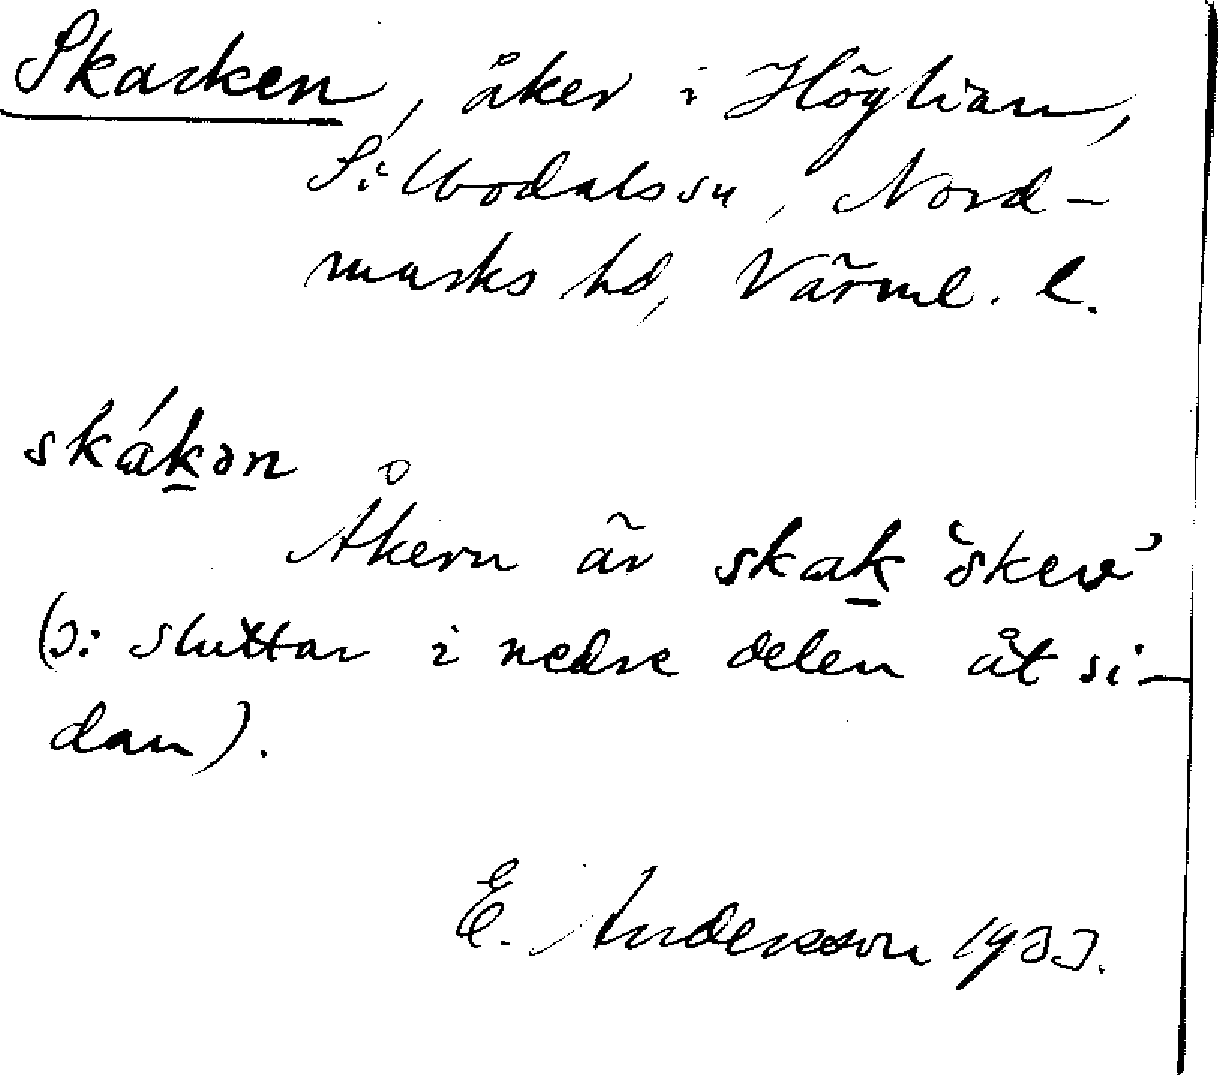 Skacken, åker i Höglian,
Silbodals sn, Nord-
marks hd, Värml. l.
skák̲ən
Åkern är skak̲ ‘skev’
(ɔ: sluttar i nedre delen åt si-
dan).
E. Andersson 1933.